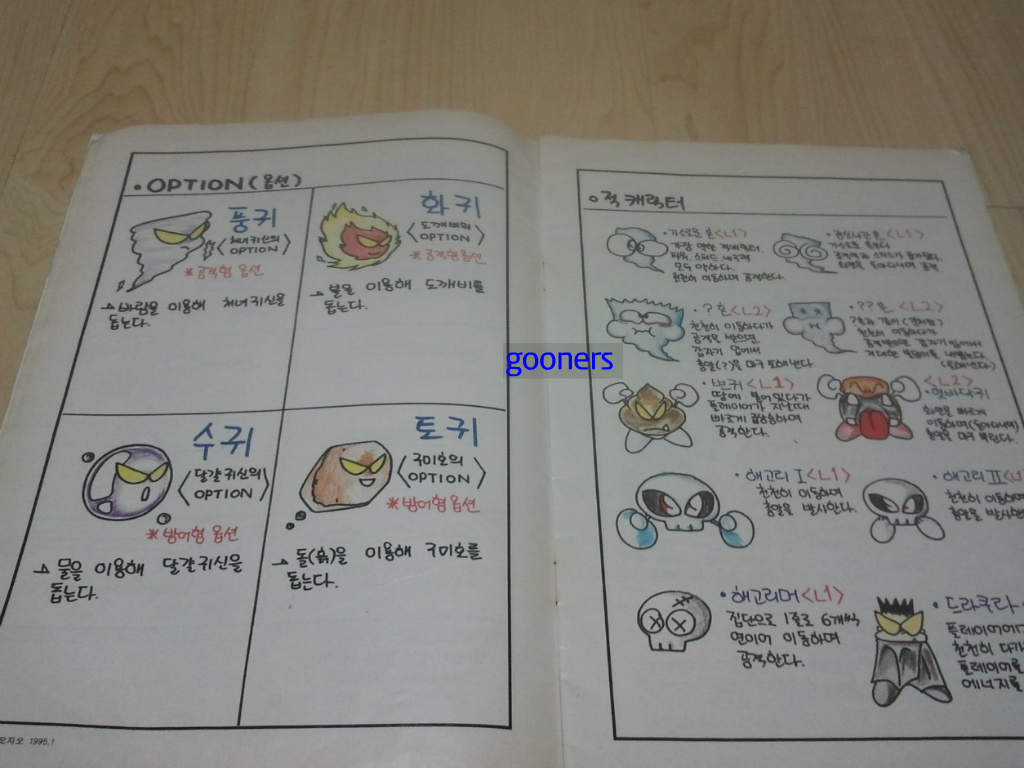 • OPTION(옵션)
풍귀
<처녀귀신의
OPTION>
* 공격형 옵션
→ 바람을 이용해 처녀귀신을
돕는다.
화귀
<도깨비의
OPTION>
* 공격형 옵션
→ 불을 이용해 도깨비를
돕는다.
수귀
<달걀귀신의
OPTION>
* 방어형 옵션
→ 물을 이용해 달걀귀신을
돕는다.
토귀
<구미호의
OPTION>
* 방어형 옵션
→ 돌(흙)을 이용해 구미호를
돕는다.
1995.1
gooners
○ 적 캐릭터
<L1>
가장 약한 적캐릭터.
파워, 스피드, 내구력
모두 약하다.
천천히 이동하며 공격한다.
<L1>
• ?혼 <L2>
천천히 이동하다가
공격을 받으면
갑자기 입에서
총알(?)을 마구 토해낸다.
• ??혼 <L2>
천천히 이동하다가
• 변귀 <L1>
땅에 붙어있다가
플레이어가 지날때
빠르게 급상승하며
공격한다.
<L2>
• 헛바닥귀
화면을 빠르게
• 해고리 I <L1>
천천히 이동하며
총알을 발사한다.
• 해고리 II <L1
천천히 이동하며
총알을 발사한
• 해고리머 <L1>
집단으로 1줄로 6개씩
연이어 이동하며
공격한다.
• 드라큐라
플레이어에게
천천히 다가
플레이어를
에너지를